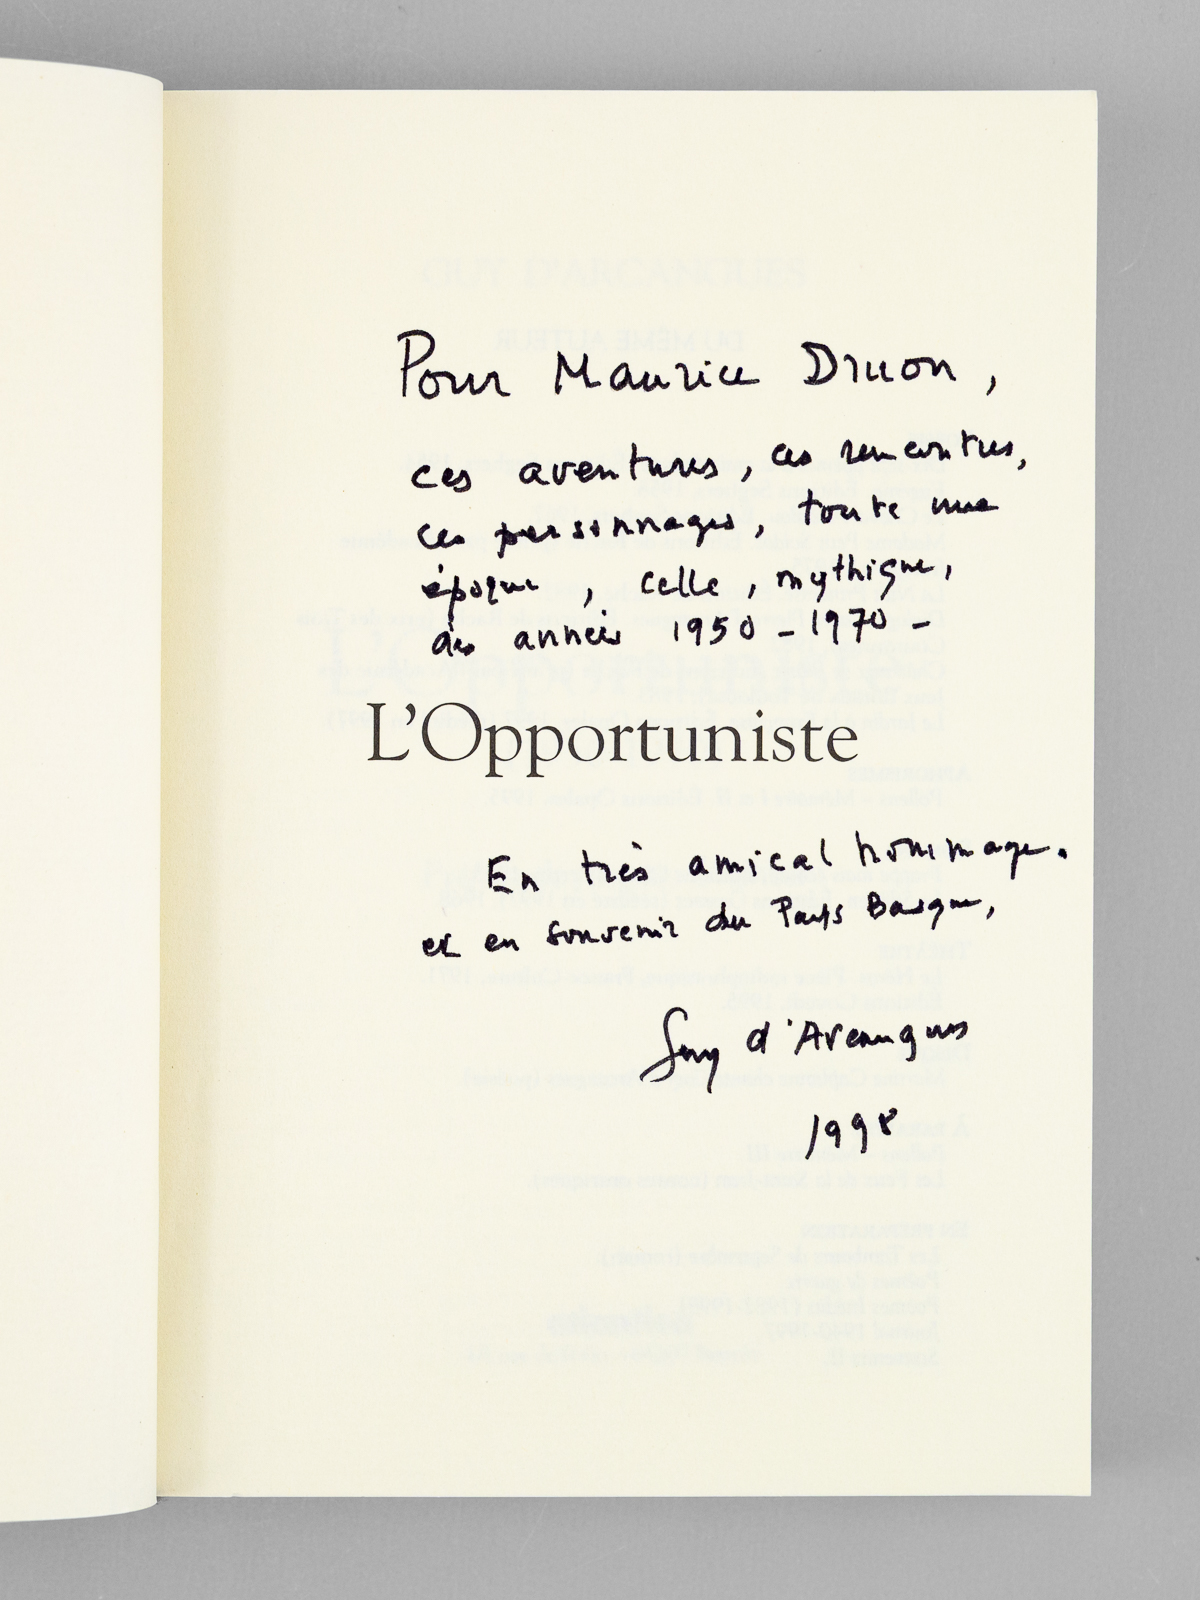 Pour Maurice Druon,
ces aventures, ces rencontres,
ces personnages, toute une
époque, celle, mythique,
des années 1950-1970-
L'Opportuniste
En très amical hommage.
et en souvenir du Pays Basque,
Guy d'Arcangues
1998